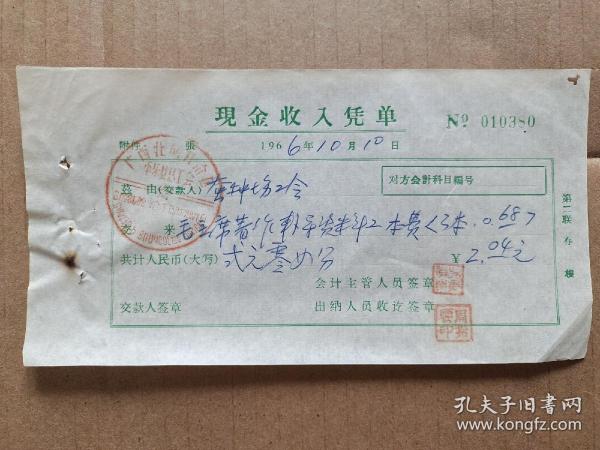 现金收入凭单
№ 010380
附件 張 1966年10月10日
兹由(交款人) 蚕种场工会
对方会計科目編号
交来 毛主席著作 資料 工本费<3本 0.68>
共计人民币(大写) 弍元零四分 ¥2.04元
会计主管人员签章
交款人签章 出纳人员收讫签章
第二联 存根
孔夫子旧书网
www.kongfz.com